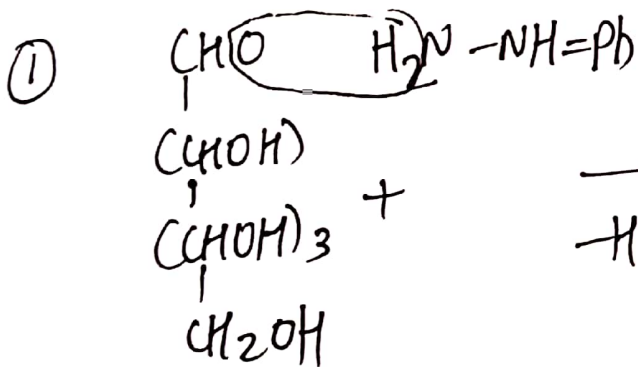 ① CHO H₂N-NH=Ph
(CHOH)
+
(CHOH)₃ -H
CH₂OH